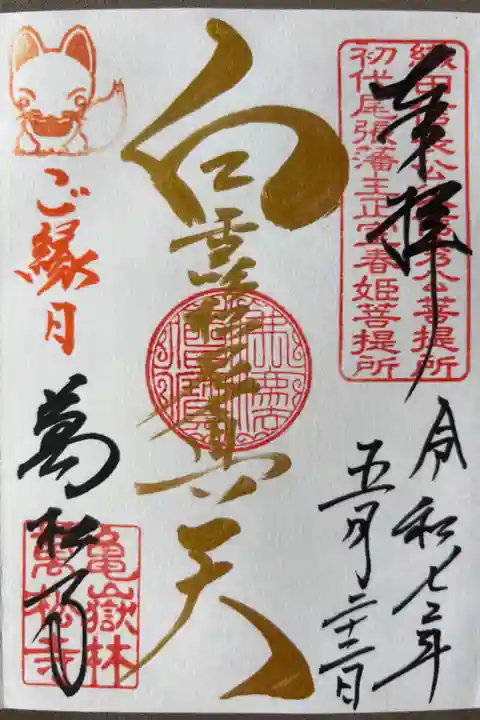 奉拝
織田信長公
秀公菩提所
初代尾張藩主正室春姫菩提所
令和七年
五月二十二日
白雪吒枳尼眞天
ご縁日
萬松寺
龜嶽林
萬松寺